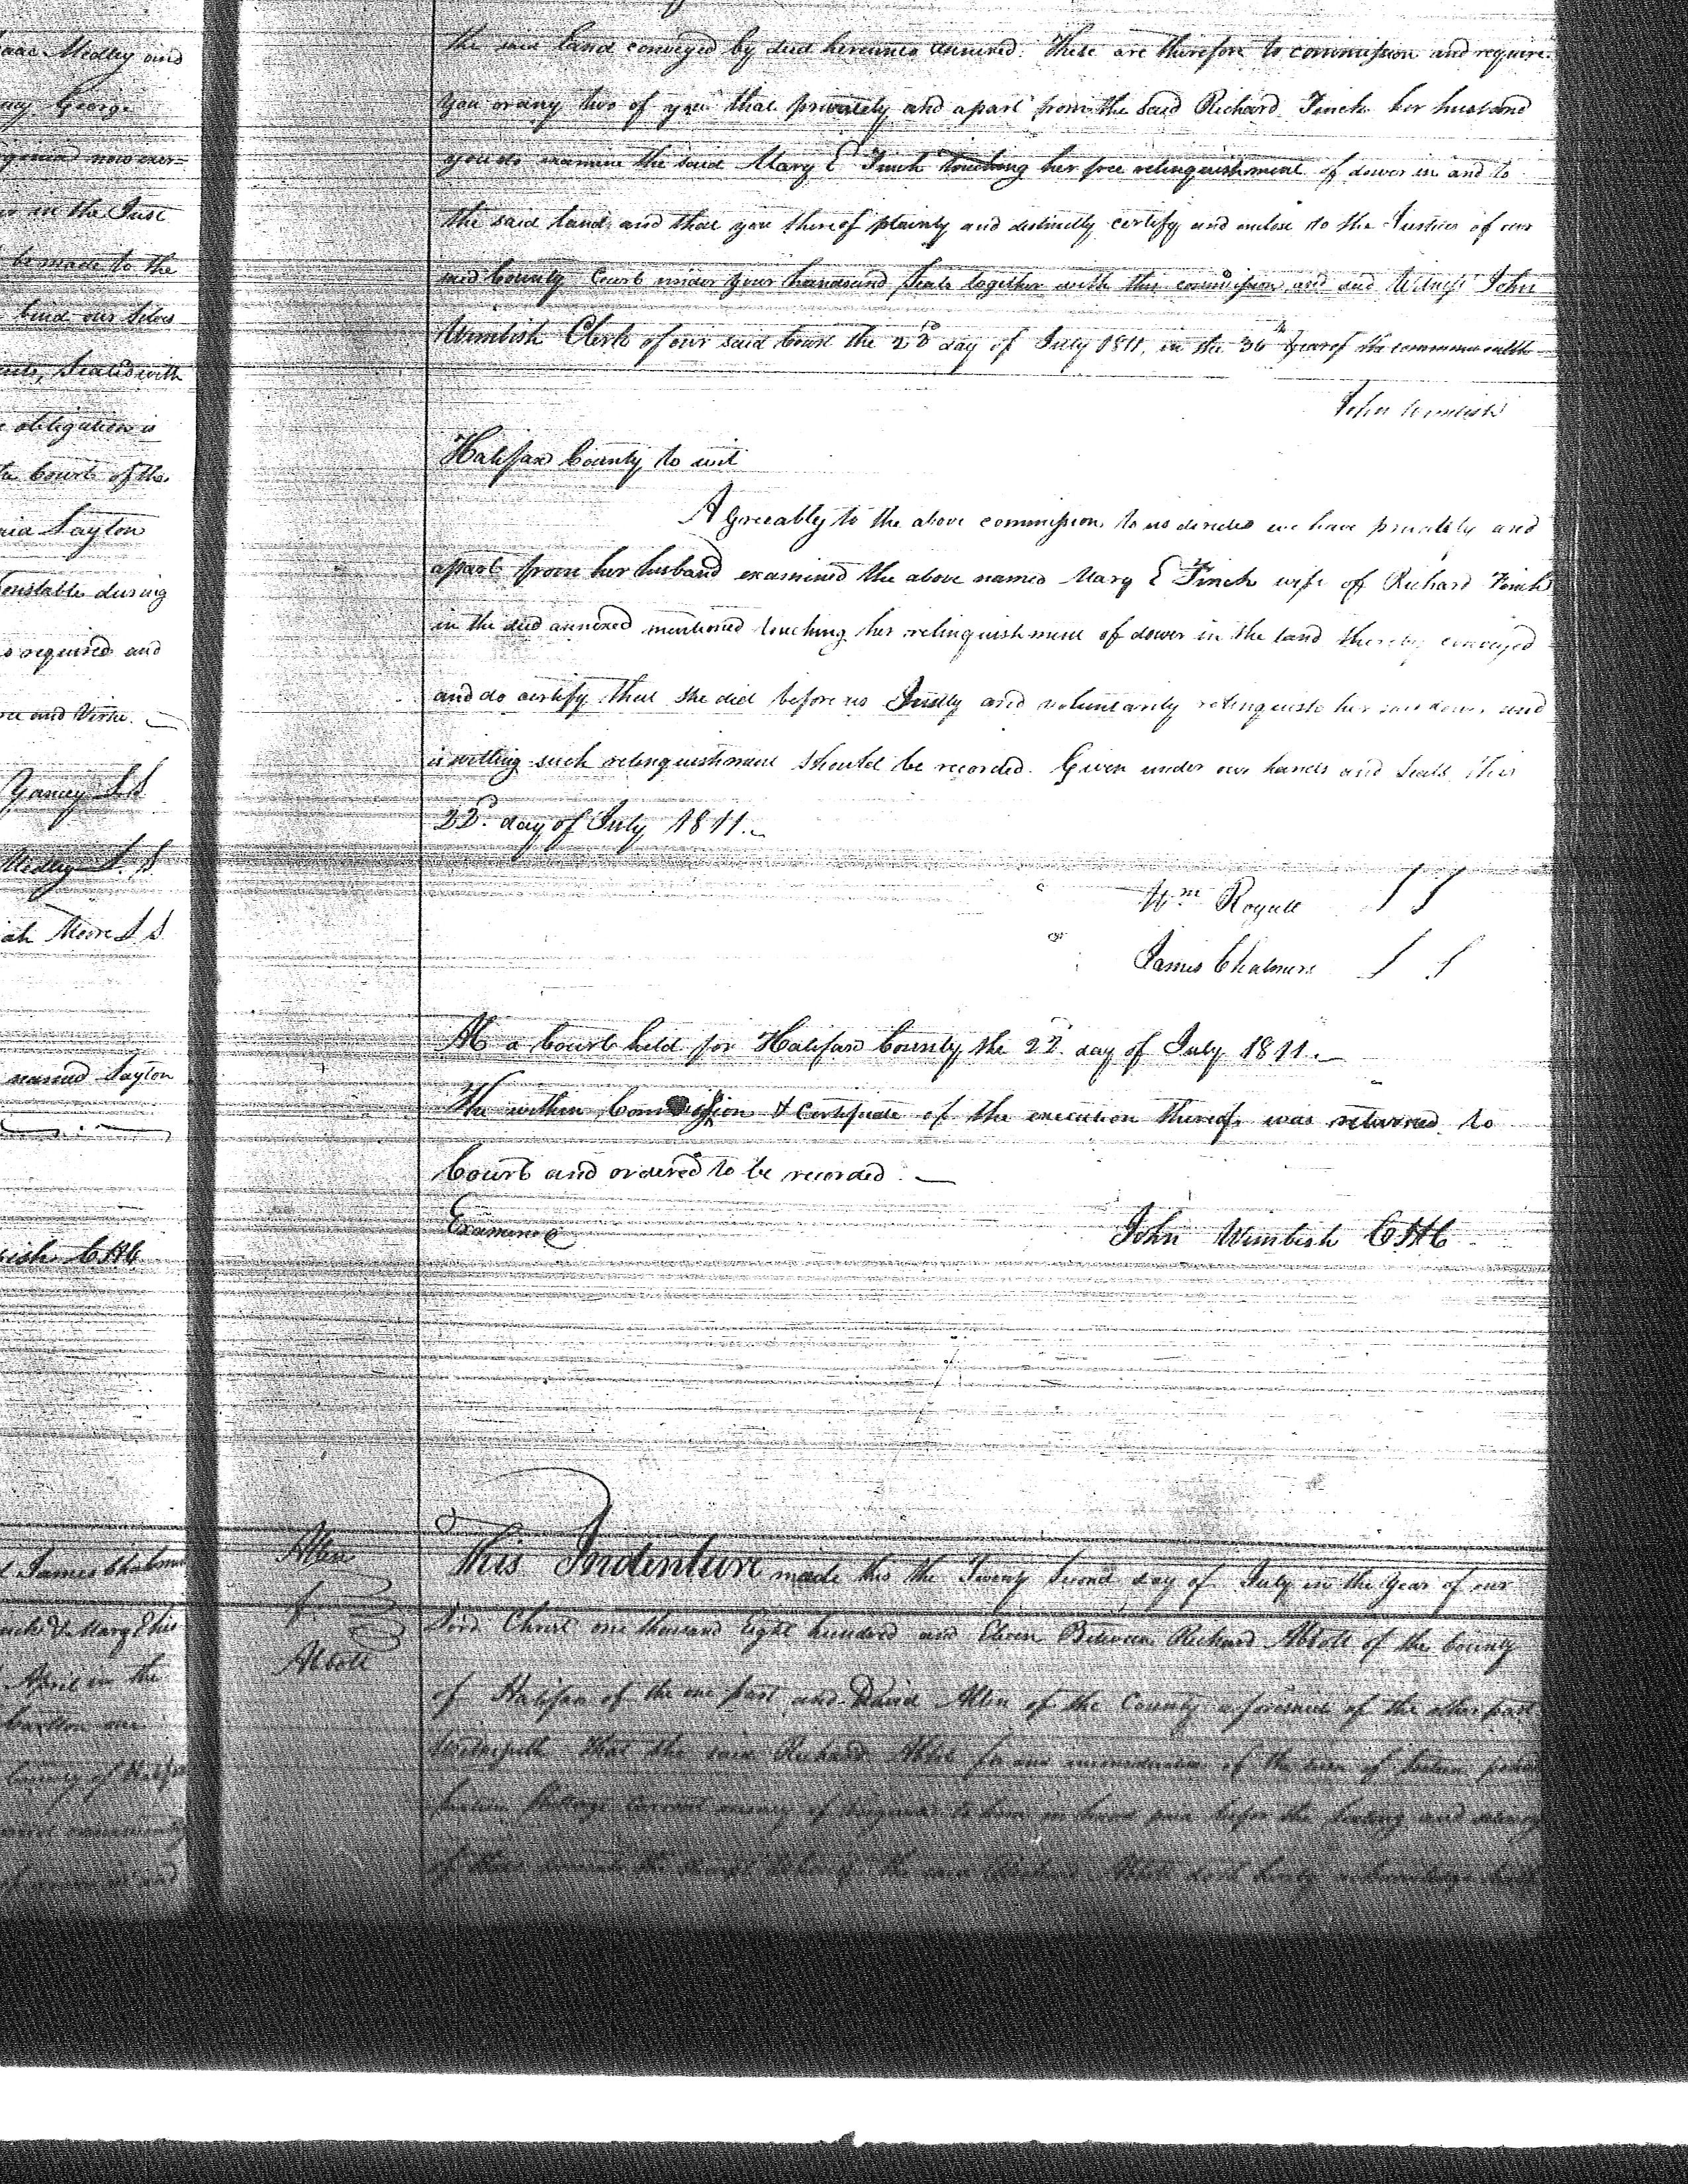 aac Medley and
George
now exer=
in the Just
be made to the
bind our Selves
Sealed with
obligation is
the Court of the
said Layton
Constable during
required and
and Virtue.
Yancey L S
Medley L. S
Moore L S
named Layton
ish C H C
James Chalmers
Mary E his
April in the
Carlton one
County of Halifax
and
the said Land conveyed by deed hereunto annexed. These are therefore to commission and require
you or any two of you that privately and apart from the said Richard Finch her husband
you do examine the said Mary E Finch touching her free relinquishment of dower in and to
the said land, and that you thereof plainly and distinctly certify and enclose to the Justices of our
said County Court under your hands and Seals together with this commission and Witness John
Wimbish Clerk of our said Court the 22d day of July 1811, in the 36th year of the commonwealth
John Wimbish
Halifax County to wit
Agreeably to the above commission to us directed we have privately and
apart from her husband examined the above named Mary E Finch wife of Richard Finch
in the deed annexed mentioned touching her relinquishment of dower in the land thereby conveyed
and do certify that she did before us freely and voluntarily relinquish her said dower and
is willing such relinquishment should be recorded. Given under our hands and Seals this
22d. day of July 1811.
Wm Royall L S
James Chalmers L S
At a Court held for Halifax County the 22d. day of July 1811.
The within Commission & Certificate of the execution thereof, was returned to
Court and ordered to be recorded.
Examined
John Wimbish C H C
Allen
f.
Abbott
This Indenture made this the Twenty Second day of July in the Year of our
Lord Christ one thousand Eight hundred and Eleven Between Richard Abbott of the County
of Halifax of the one part and David Allen of the County aforesaid of the other part
Witnesseth that the said Richard Abbott for and in consideration of the sum of
Shillings current money of Virginia to him in hand paid before the Sealing and delivery
of these presents the receipt whereof the said Richard Abbott doth hereby acknowledge